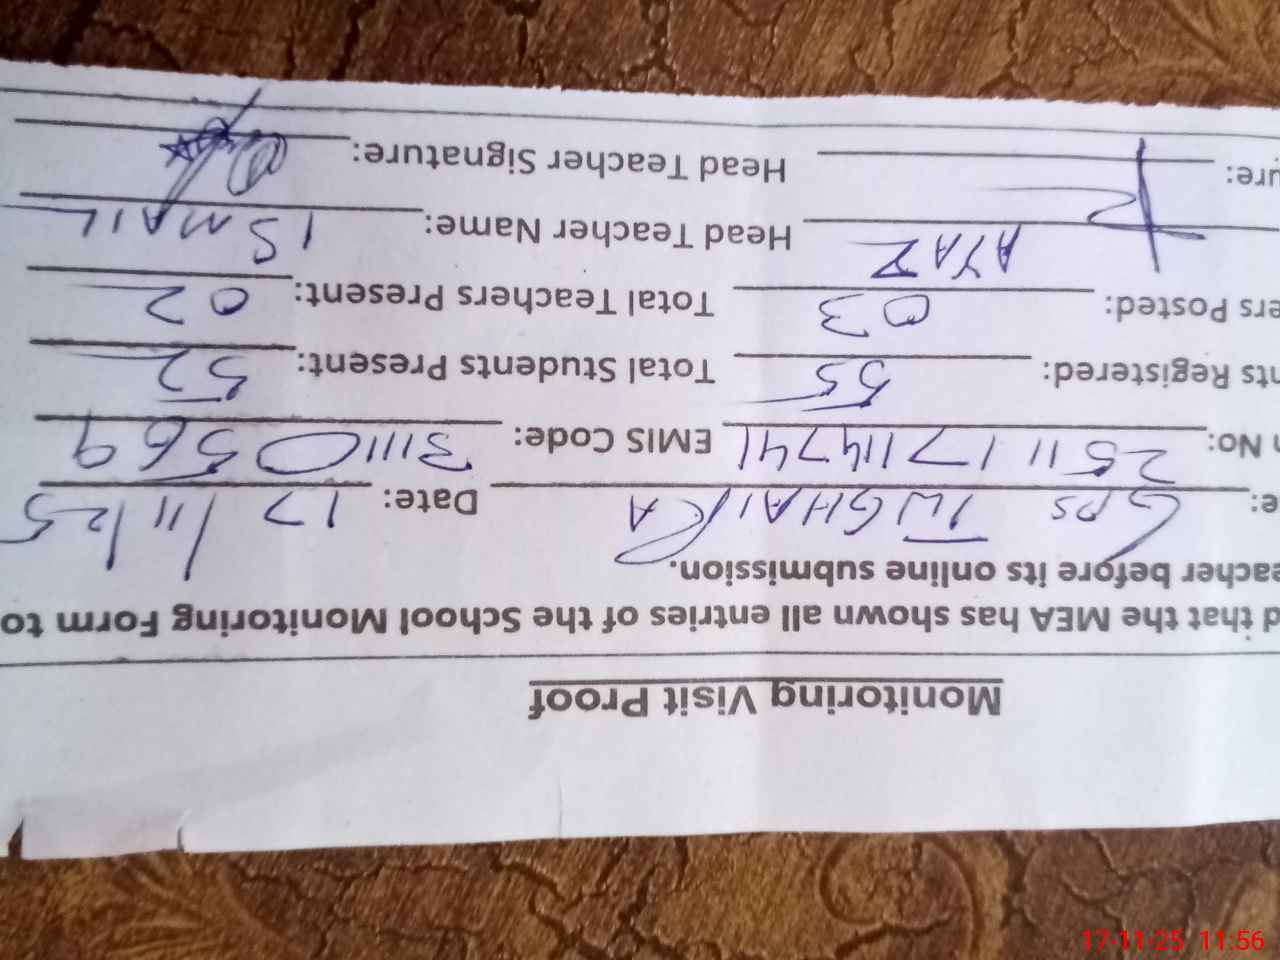 Monitoring Visit Proof
d that the MEA has shown all entries of the School Monitoring Form to
eacher before its online submission.
e: GPS Date: 17/11/25
n No: 251117114741 EMIS Code: 31110569
nts Registered: 55 Total Students Present: 52
ers Posted: 03 Total Teachers Present: 02
AYAZ Head Teacher Name: ISMAIL
ure: Head Teacher Signature:
17-11-25 11:56